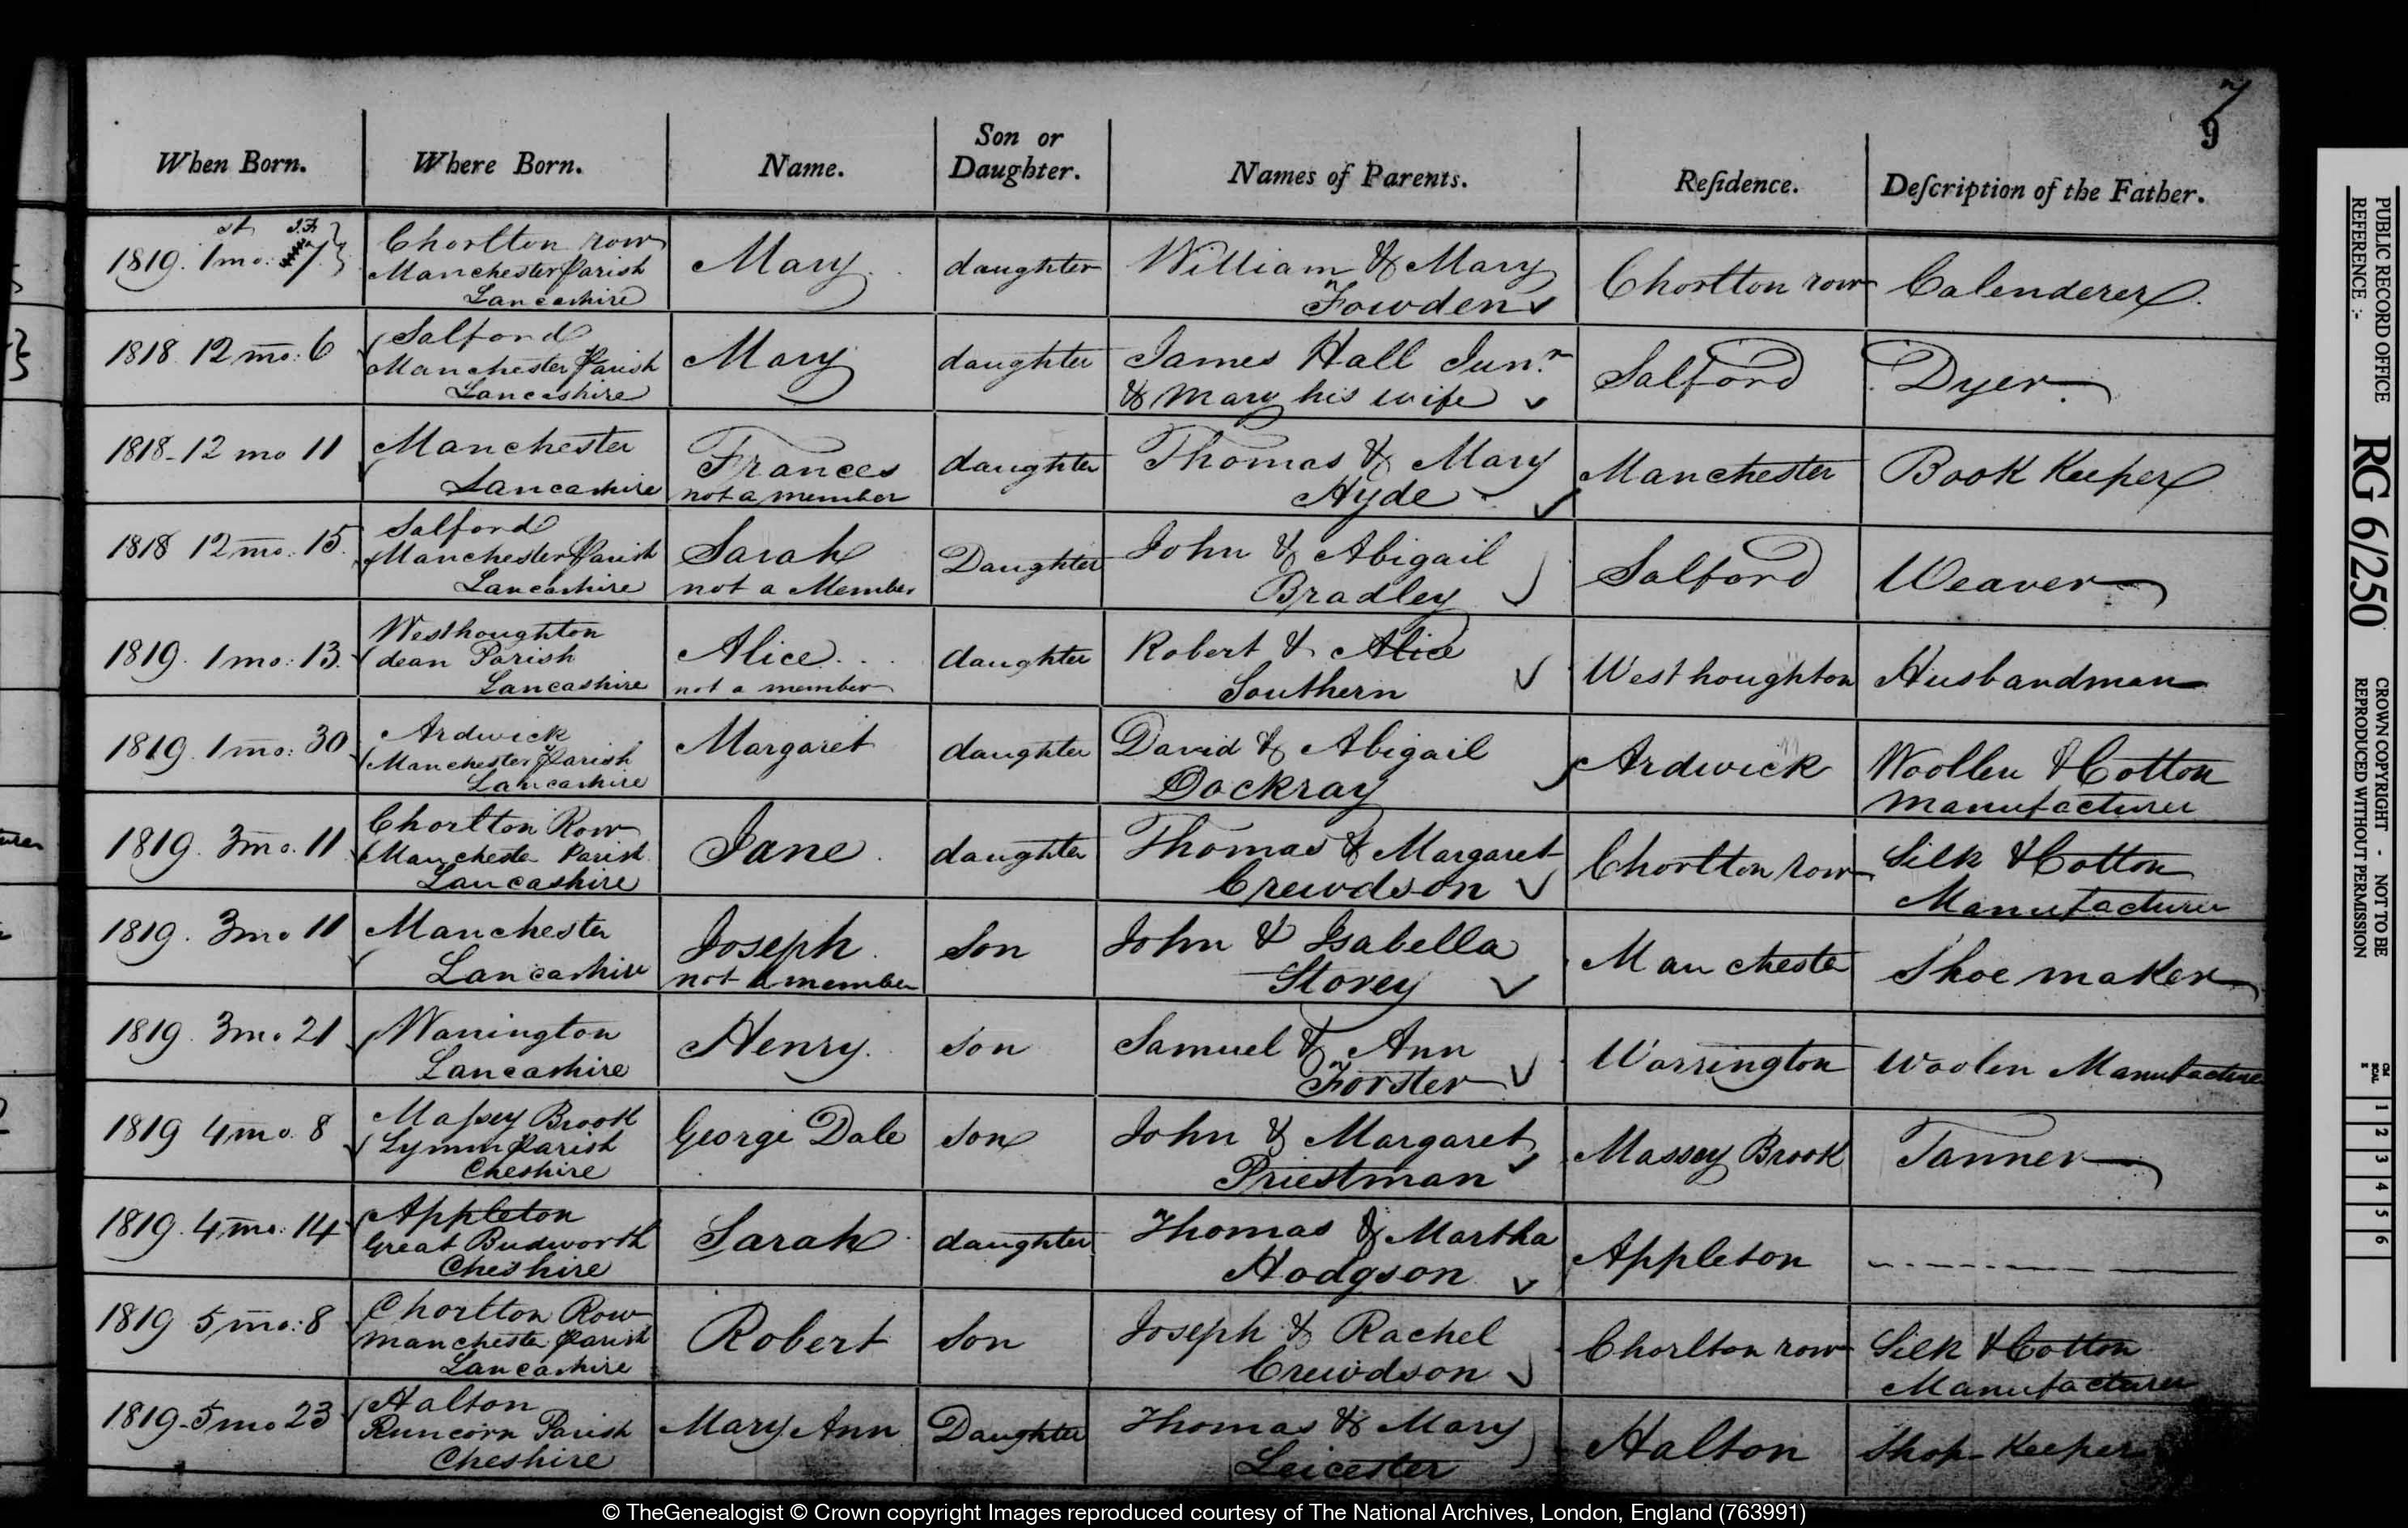 7
9
When Born. Where Born. Name. Son or Daughter. Names of Parents. Reſidence. Deſcription of the Father.
1819. 1st mo: 7 J.F. Chorlton row Manchester Parish Lancashire Mary daughter William & Mary Fowden Chorlton row Calenderer
1818 12 mo: 6 Salford Manchester Parish Lancashire Mary daughter James Hall Junr. & Mary his wife Salford Dyer
1818-12 mo 11 Manchester Lancashire Frances not a member daughter Thomas & Mary Hyde Manchester Book Keeper
1818 12 mo: 15. Salford Manchester Parish Lancashire Sarah not a Member Daughter John & Abigail Bradley Salford Weaver
1819. 1 mo: 13. Westhoughton dean Parish Lancashire Alice not a member daughter Robert & Alice Southern Westhoughton Husbandman
1819. 1 mo: 30 Ardwick Manchester Parish Lancashire Margaret daughter David & Abigail Dockray Ardwick Woollen & Cotton Manufacturer
1819. 3 mo. 11 Chorlton Row Manchester Parish Lancashire Jane daughter Thomas & Margaret Crewdson Chorlton row Silk & Cotton Manufacturer
1819. 3 mo 11 Manchester Lancashire Joseph not a member Son John & Isabella Storey Manchester Shoe maker
1819. 3 mo. 21 Warrington Lancashire Henry son Samuel & Ann Forster Warrington Woolen Manufacturer
1819 4 mo. 8 Maſsey Brook Lymm Parish Cheshire George Dale son John & Margaret Priestman Massey Brook Tanner
1819. 4 mo: 14 Appleton Great Budworth Cheshire Sarah daughter Thomas & Martha Hodgson Appleton
1819 5 mo: 8 Chorlton Row Manchester Parish Lancashire Robert Son Joseph & Rachel Crewdson Chorlton row Silk & Cotton Manufacturer
1819-5 mo 23 Halton Runcorn Parish Cheshire Mary Ann Daughter Thomas & Mary Leicester Halton Shop-Keeper
PUBLIC RECORD OFFICE
REFERENCE :-
RG 6/250
CROWN COPYRIGHT - NOT TO BE
REPRODUCED WITHOUT PERMISSION
1 2 3 4 5 6
© TheGenealogist © Crown copyright Images reproduced courtesy of The National Archives, London, England (763991)